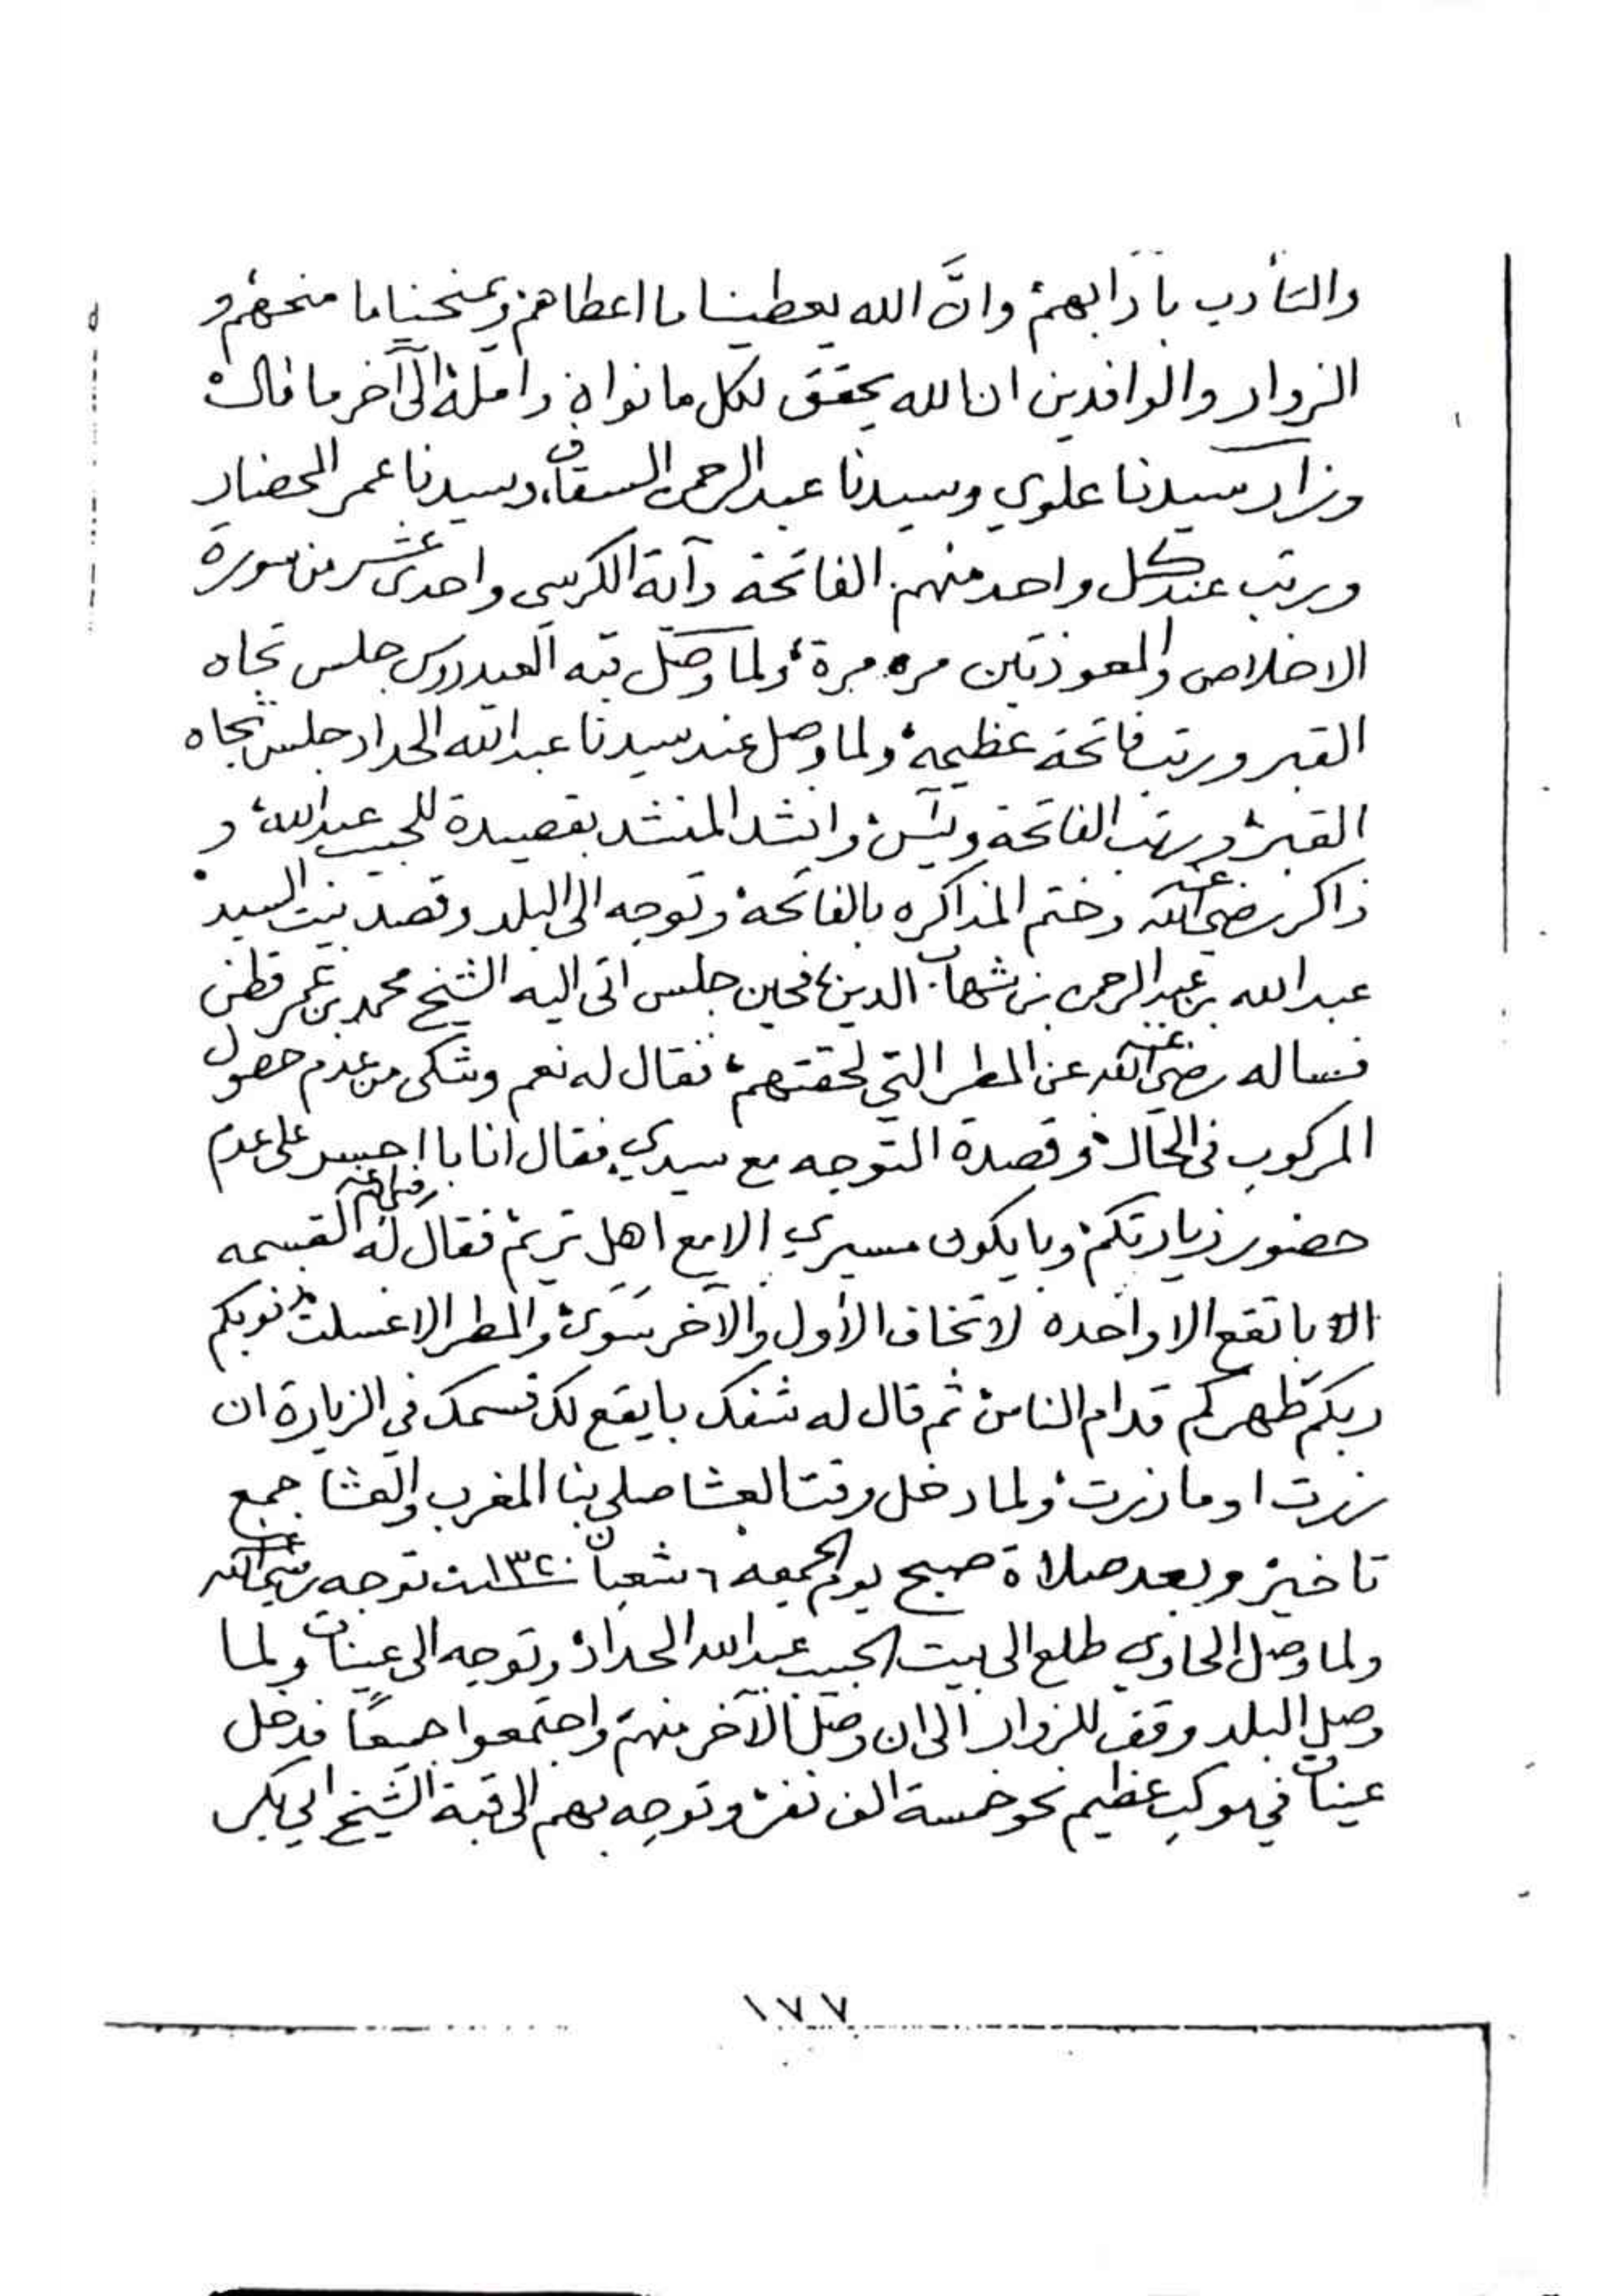 والتأدب بآدابهم وانَّ الله يعطينا ما اعطاهم ويمنحنا ما منحهم و
الزوار والوافدين ان الله يحقق لكل ما نواه وامله الى آخر ما قال
وزار سيدنا علوي وسيدنا عبد الرحمن السقاف وسيدنا عمر المحضار
ورتب عند كل واحد منهم الفاتحة وآية الكرسي واحدى عشر من سورة
الاخلاص والمعوذتين مره مرة ولما وصل قبه العيدروس جلس تجاه
القبر ورتب فاتحة عظيمه ولما وصل عند سيدنا عبد الله الحداد جلس تجاه
القبر ورتب الفاتحة ويس وانشد المنشد بقصيدة للحبيب عبدالله و
ذاكر رضي الله عنه وختم المذاكره بالفاتحة وتوجه الى البلد وقصد بيت السيد
عبد الله بن عبد الرحمن بن شهاب الدين فحين جلس اتى اليه الشيخ محمد بن عمر قطن
فساله رضي الله عنه عن المطر التي لحقتهم فقال له نعم وشكى من عدم حصول
المركوب في الحال وقصدة التوجه مع سيدي فقال انا با احسر على عدم
حضور زيارتكم وبا يكون مسيري الا مع اهل تريم فقال له رضي الله عنه القسمه
الا باتقع الا واحده لا تخاف الأول والآخر سوى والمطر الا غسلت ذنوبكم
ربكم طهركم قدام الناس ثم قال له شفك بايقع لك قسمك في الزيارة ان
زرت او ما زرت ولما دخل وقت العشا صلى بنا المغرب والعشا جمع
تاخير وبعد صلاة صبح يوم الجمعه ٦ شعبان سنة ١٣٢٠ توجه رضي الله عنه
ولما وصل الحاوي طلع الى بيت الحبيب عبد الله الحداد وتوجه الى عينات ولما
وصل البلد وقف للزوار الى ان وصل الآخر منهم واجتمعوا جميعًا فدخل
عينات في موكب عظيم نحو خمسة الف نفر وتوجه بهم الى قبة الشيخ ابي بكر
١٧٧